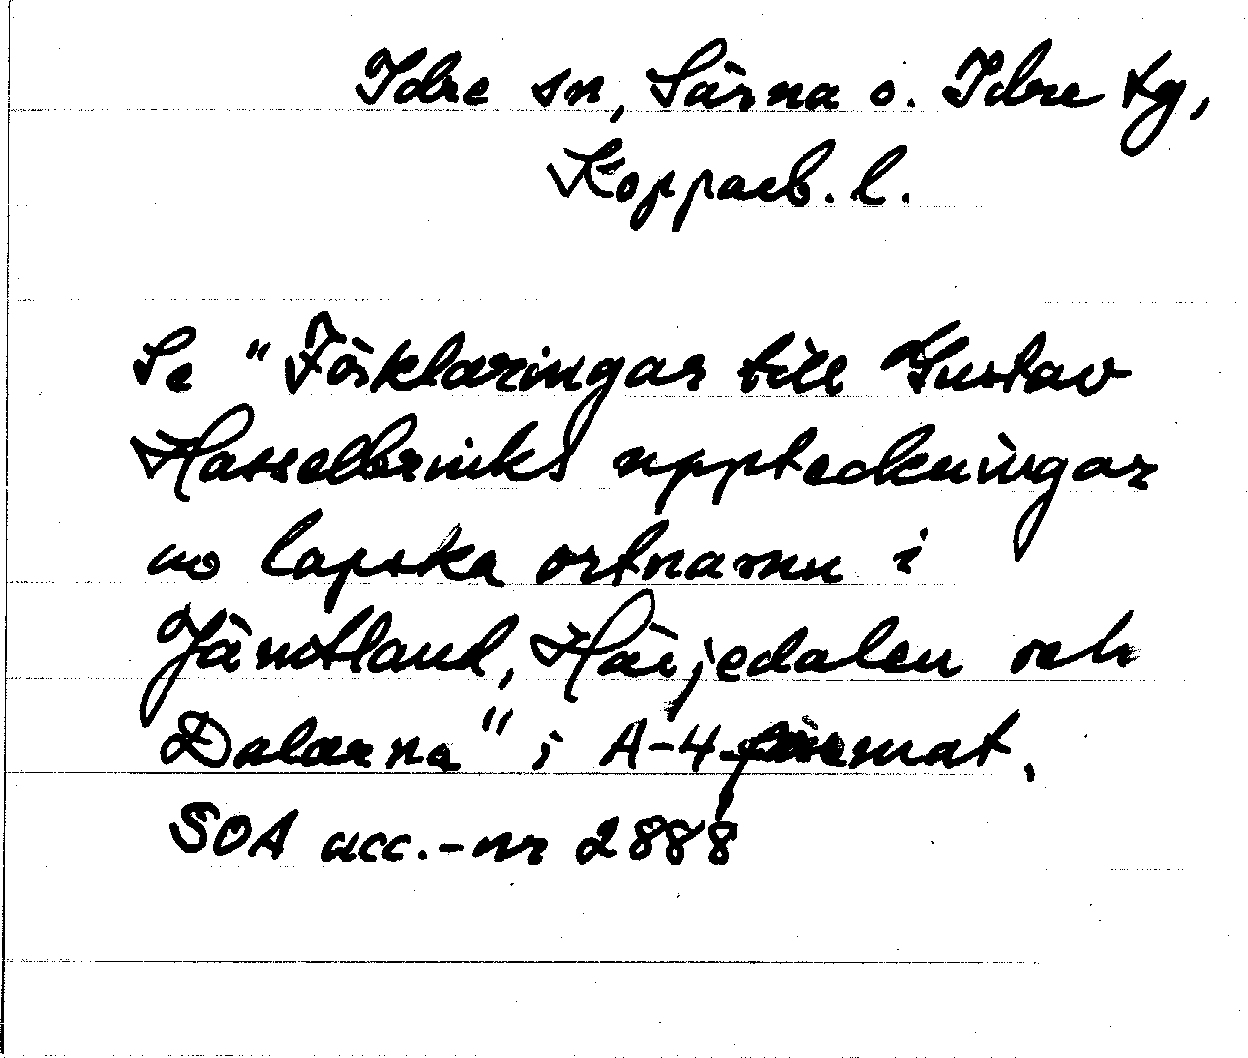 Idre sn, Särna o. Idre tg,
Kopparb. l.
Se "Förklaringar till Gustav
Hasselbrinks uppteckningar
av lapska ortnamn i
Jämtland, Härjedalen och
Dalarna" i A-4-format.
SOA acc.-nr 2888